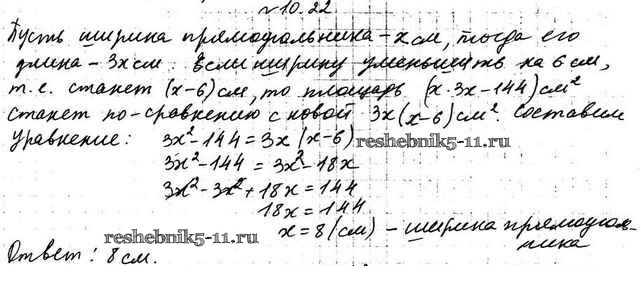 №10.22
Пусть ширина прямоугольника – x см, тогда его
длина – 3x см. Если ширину уменьшить на 6 см,
т.е. станет (x-6) см, то площадь (x·3x-144) см²
станет по-сравнению с новой 3x(x-6) см². Составим
уравнение: 3x²-144=3x(x-6)
reshebnik5-11.ru
3x²-144=3x²-18x
3x²-3x²+18x=144
18x=144
x=8 (см) – ширина прямоугольника
reshebnik5-11.ru
Ответ: 8 см.